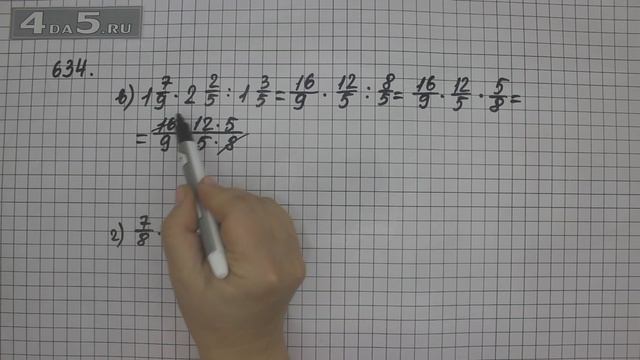 4DA5.RU
634.
в) 1 7/9 · 2 2/5 : 1 3/5 = 16/9 · 12/5 : 8/5 = 16/9 · 12/5 · 5/8 =
= 16 · 12 · 5 / 9 · 5 · 8
г) 7/8 ·